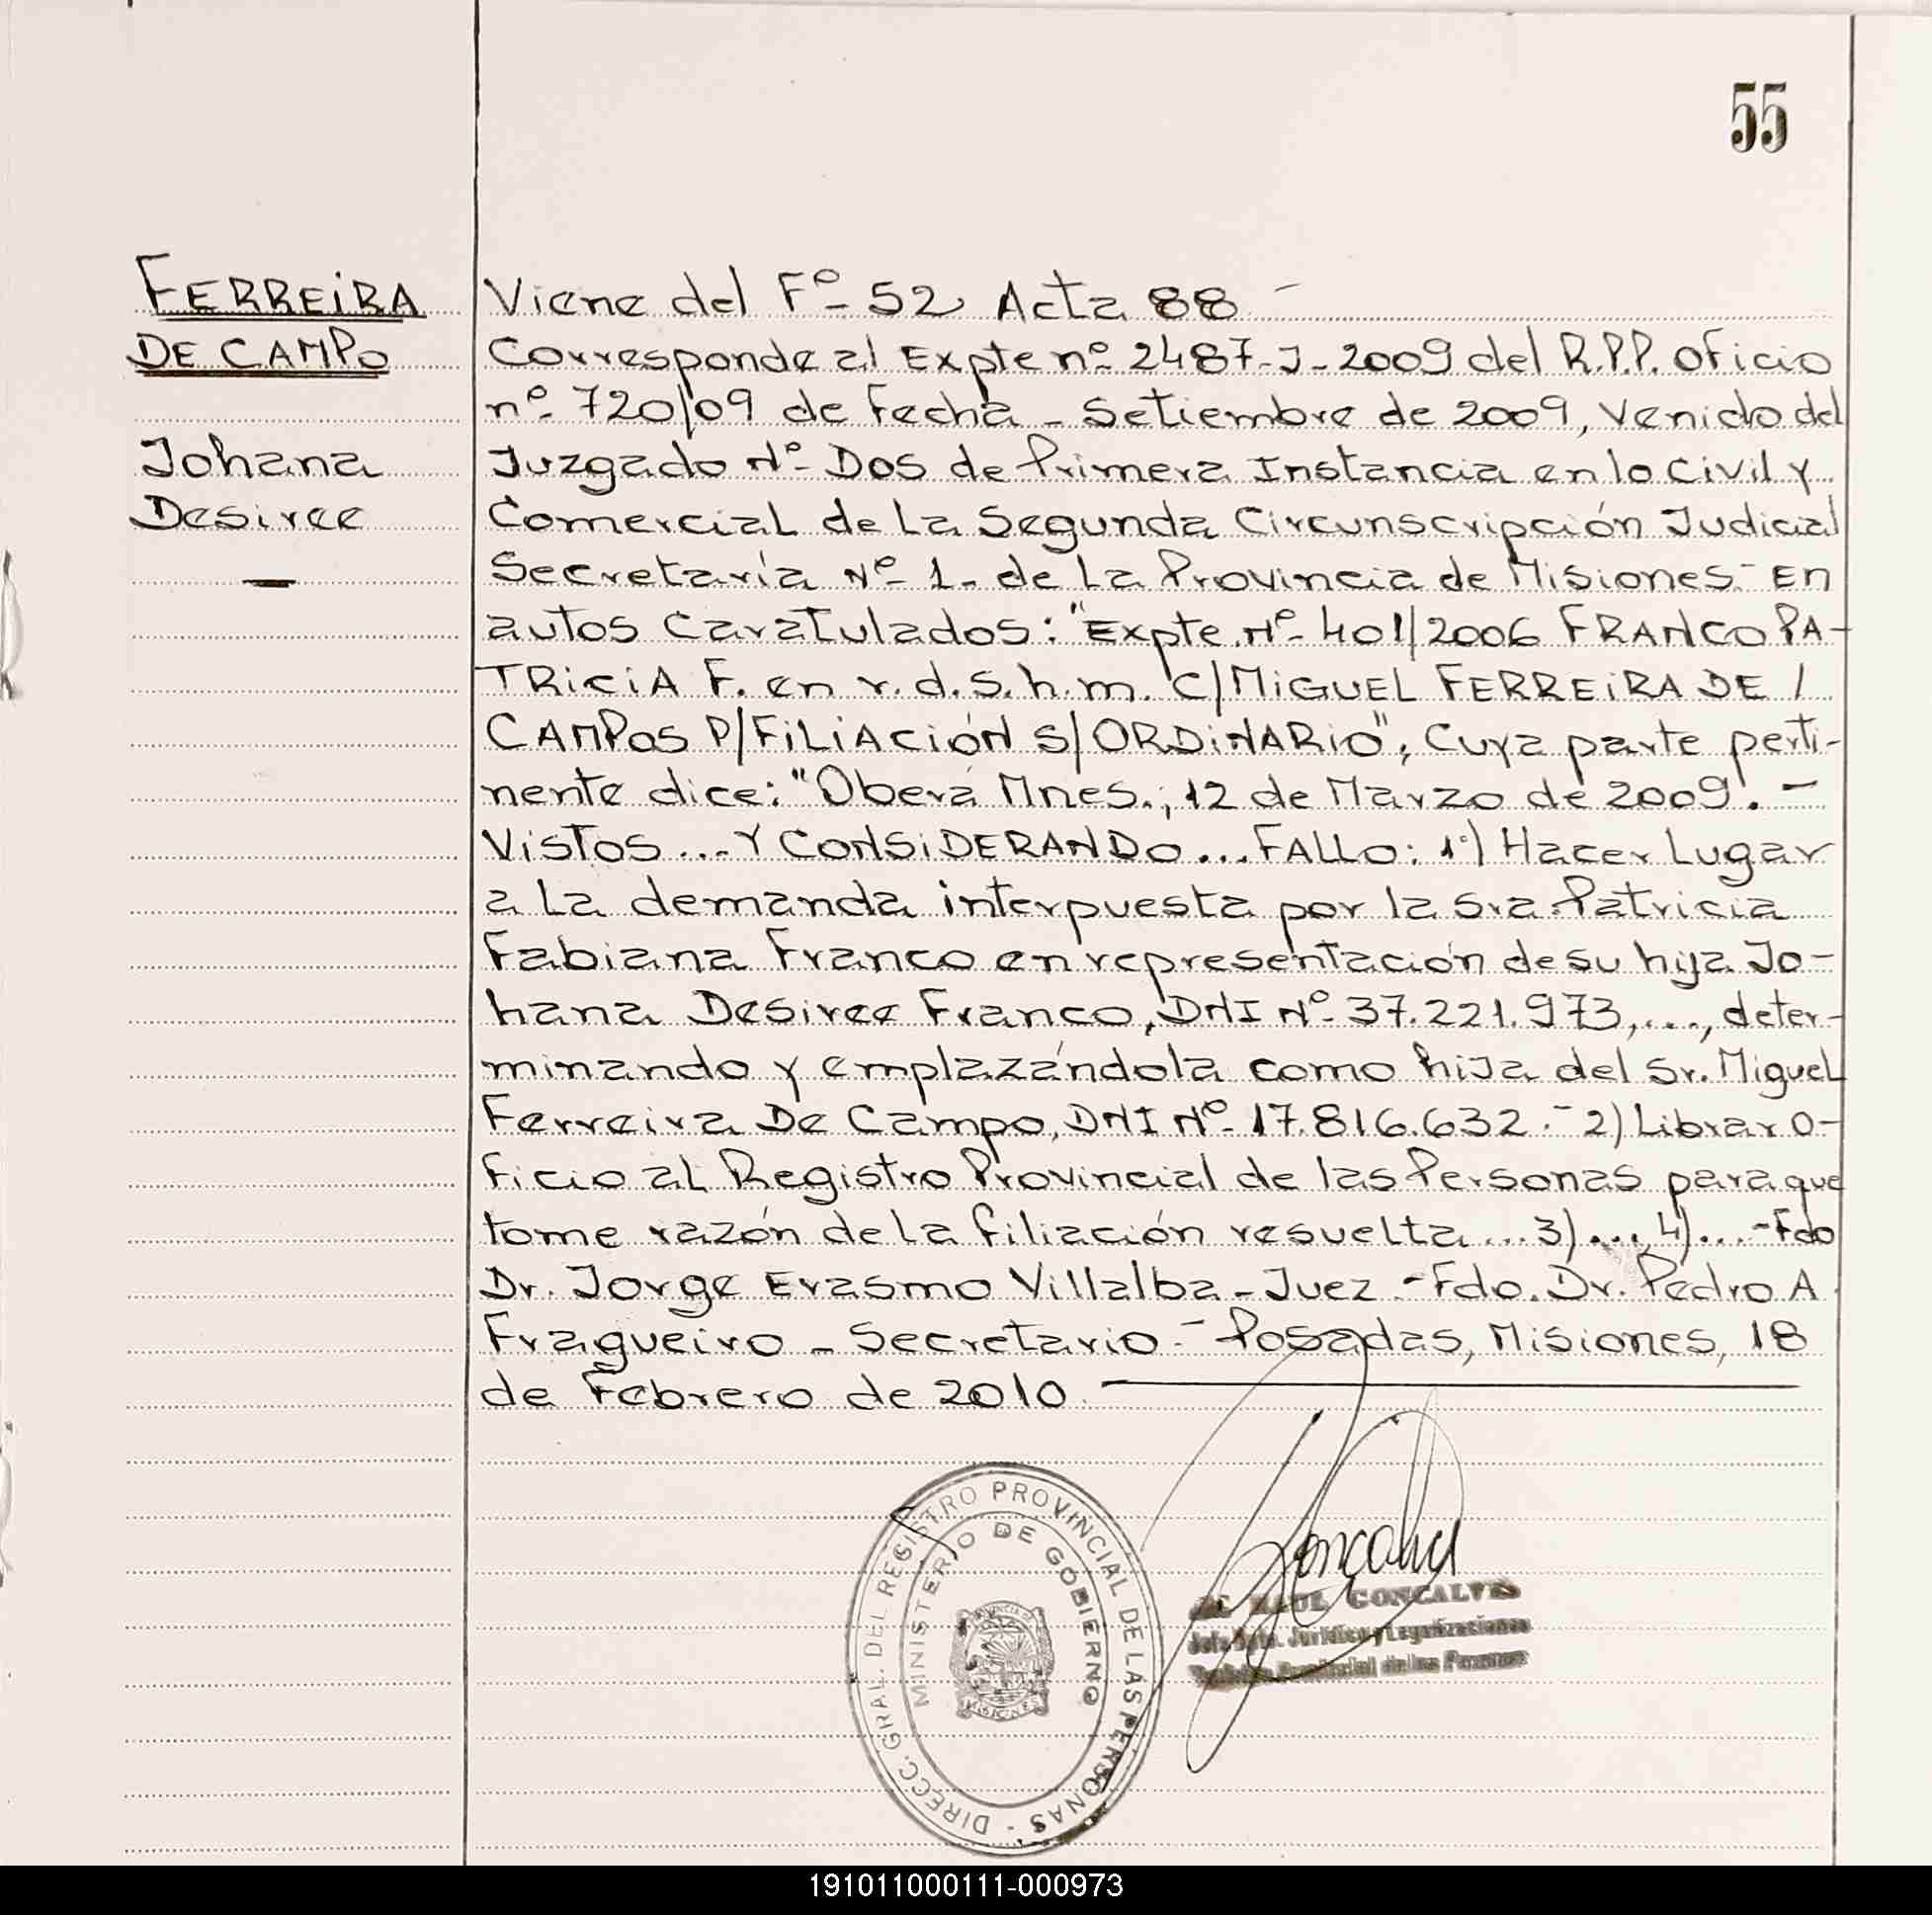 55
FERREIRA
DE CAMPO
Johana
Desiree
Viene del Fº- 52 Acta 88 -
Corresponde al Expte nº- 2487-J-2009 del R.P.P. oficio
nº- 720/09 de fecha - Setiembre de 2009, venido del
Juzgado Nº- Dos de Primera Instancia en lo Civil y
Comercial de La Segunda Circunscripción Judicial
Secretaría Nº- 1- de La Provincia de Misiones- En
autos Caratulados: "Expte. Nº- 401/2006 FRANCO PA-
TRICIA F. en r.d.s.h.m. C/MIGUEL FERREIRA DE /
CAMPOS P/FILIACIÓN S/ORDINARIO", Cuya parte perti-
nente dice: "Oberá Mnes., 12 de Marzo de 2009. -
VISTOS ... Y CONSIDERANDO... FALLO: 1º) Hacer Lugar
a La demanda interpuesta por la Sra. Patricia
Fabiana Franco en representación de su hija Jo-
hana Desiree Franco, DNI Nº- 37.221.973,..., deter-
minando y emplazándola como hija del Sr. Miguel
Ferreira De Campo, DNI Nº- 17.816.632.- 2) Librar O-
ficio al Registro Provincial de las Personas para que
tome razón de La filiación resuelta... 3)..., 4)... -Fdo
Dr. Jorge Erasmo Villalba - Juez - Fdo. Dr. Pedro A.
Fragueiro - Secretario.- Posadas, Misiones, 18
de Febrero de 2010.
DIRECC. GRAL. DEL REGISTRO PROVINCIAL DE LAS PERSONAS -
MINISTERIO DE GOBIERNO
MISIONES
RAUL GONCALVES
Jefe Dpto. Jurídico y Legalizaciones
Provincial de las Personas
191011000111-000973